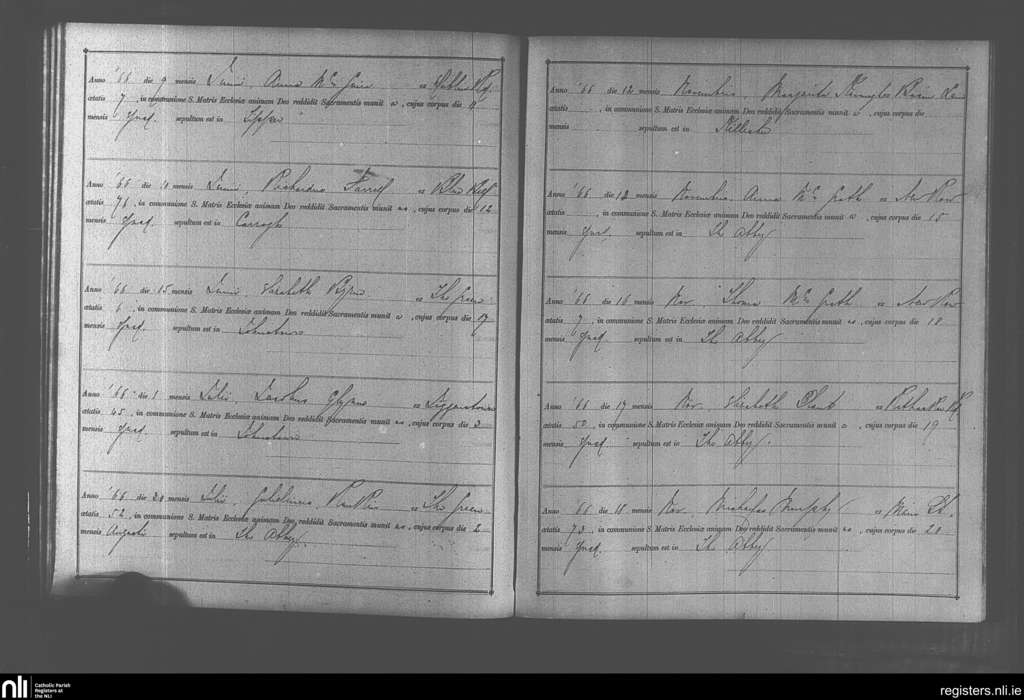 Anno '66 die 9 mensis Junii, Anna Mc
ætatis 7, in communione S. Matris Ecclesiæ animam Deo reddidit Sacramentis munit a, cujus corpus die 11
mensis ejusd. sepultum est in
Anno '66 die 10 mensis Junii, Richardus Farrell ex
ætatis 76, in communione S. Matris Ecclesiæ animam Deo reddidit Sacramentis munit us, cujus corpus die 12
mensis ejusd. sepultum est in Carragh
Anno '66 die 15 mensis Junii, Elizabeth Byrne ex The Green
ætatis 6, in communione S. Matris Ecclesiæ animam Deo reddidit Sacramentis munit a, cujus corpus die 17
mensis ejusd. sepultum est in Johnstown
Anno '66 die 1 mensis Julii, Jacobus Glynn ex
ætatis 45, in communione S. Matris Ecclesiæ animam Deo reddidit Sacramentis munit us, cujus corpus die 3
mensis ejusd. sepultum est in Johnstown
Anno '66 die mensis Julii, Gulielmus ex The Green
ætatis 52, in communione S. Matris Ecclesiæ animam Deo reddidit Sacramentis munit us, cujus corpus die 2
mensis Augusti sepultum est in The Abbey
Anno '66 die 12 mensis Novembris, Margarita
ætatis , in communione S. Matris Ecclesiæ animam Deo reddidit Sacramentis munit a, cujus corpus die
mensis sepultum est in
Anno '66 die 12 mensis Novembris Anna McGrath ex New Row
ætatis , in communione S. Matris Ecclesiæ animam Deo reddidit Sacramentis munit a, cujus corpus die 15
mensis ejusd. sepultum est in The Abbey
Anno '66 die 16 mensis Nov. Thoma McGrath ex New Row
ætatis 7, in communione S. Matris Ecclesiæ animam Deo reddidit Sacramentis munit us, cujus corpus die 18
mensis ejusd. sepultum est in The Abbey
Anno '66 die 17 mensis Nov. Elizabeth ex
ætatis 52, in communione S. Matris Ecclesiæ animam Deo reddidit Sacramentis munit a, cujus corpus die 19
mensis ejusd. sepultum est in The Abbey.
Anno '66 die 18 mensis Nov. Michael Murphy ex Main St.
ætatis 73, in communione S. Matris Ecclesiæ animam Deo reddidit Sacramentis munit us, cujus corpus die 20
mensis ejusd. sepultum est in The Abbey
nli Catholic Parish
Registers at
the NLI
registers.nli.ie